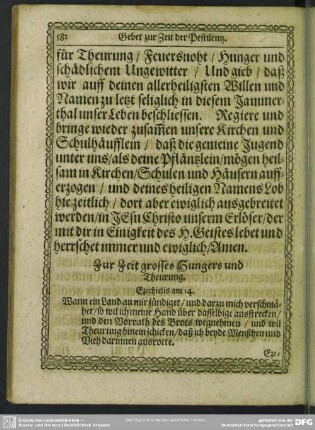 582 Gebet zur Zeit der Pestilentz.
für Theurung / Feuersnoht / Hunger und
schädlichem Ungewitter / Und gieb / daß
wir auff deinen allerheiligsten Willen und
Namen zu letzt seliglich in diesem Jammer-
thal unser Leben beschliessen. Regiere und
bringe wieder zusam̃en unsere Kirchen und
Schulhäufflein / daß die gemeine Jugend
unter uns / als deine Pfläntzlein / mögen heil-
sam in Kirchen / Schulen und Häusern auff-
erzogen / und deines heiligen Namens Lob
hie zeitlich / dort aber ewiglich ausgebreitet
werden / in JEsu Christo unserm Erlöser / der
mit dir in Einigkeit des H. Geistes lebet und
herrschet immer und ewiglich / Amen.
Zur Zeit grosses Hungers und
Theurung.
Ezechielis am 14.
Wann ein Land an mir sündiget / und dar zu mich verschmä-
het / so wil ich meine Hand über dasselbige ausstrecken /
und den Vorrath des Brots wegnehmen / und wil
Theurung hinein schicken / daß ich beyde Menschen und
Vieh darinnen ausrotte.
Eze-